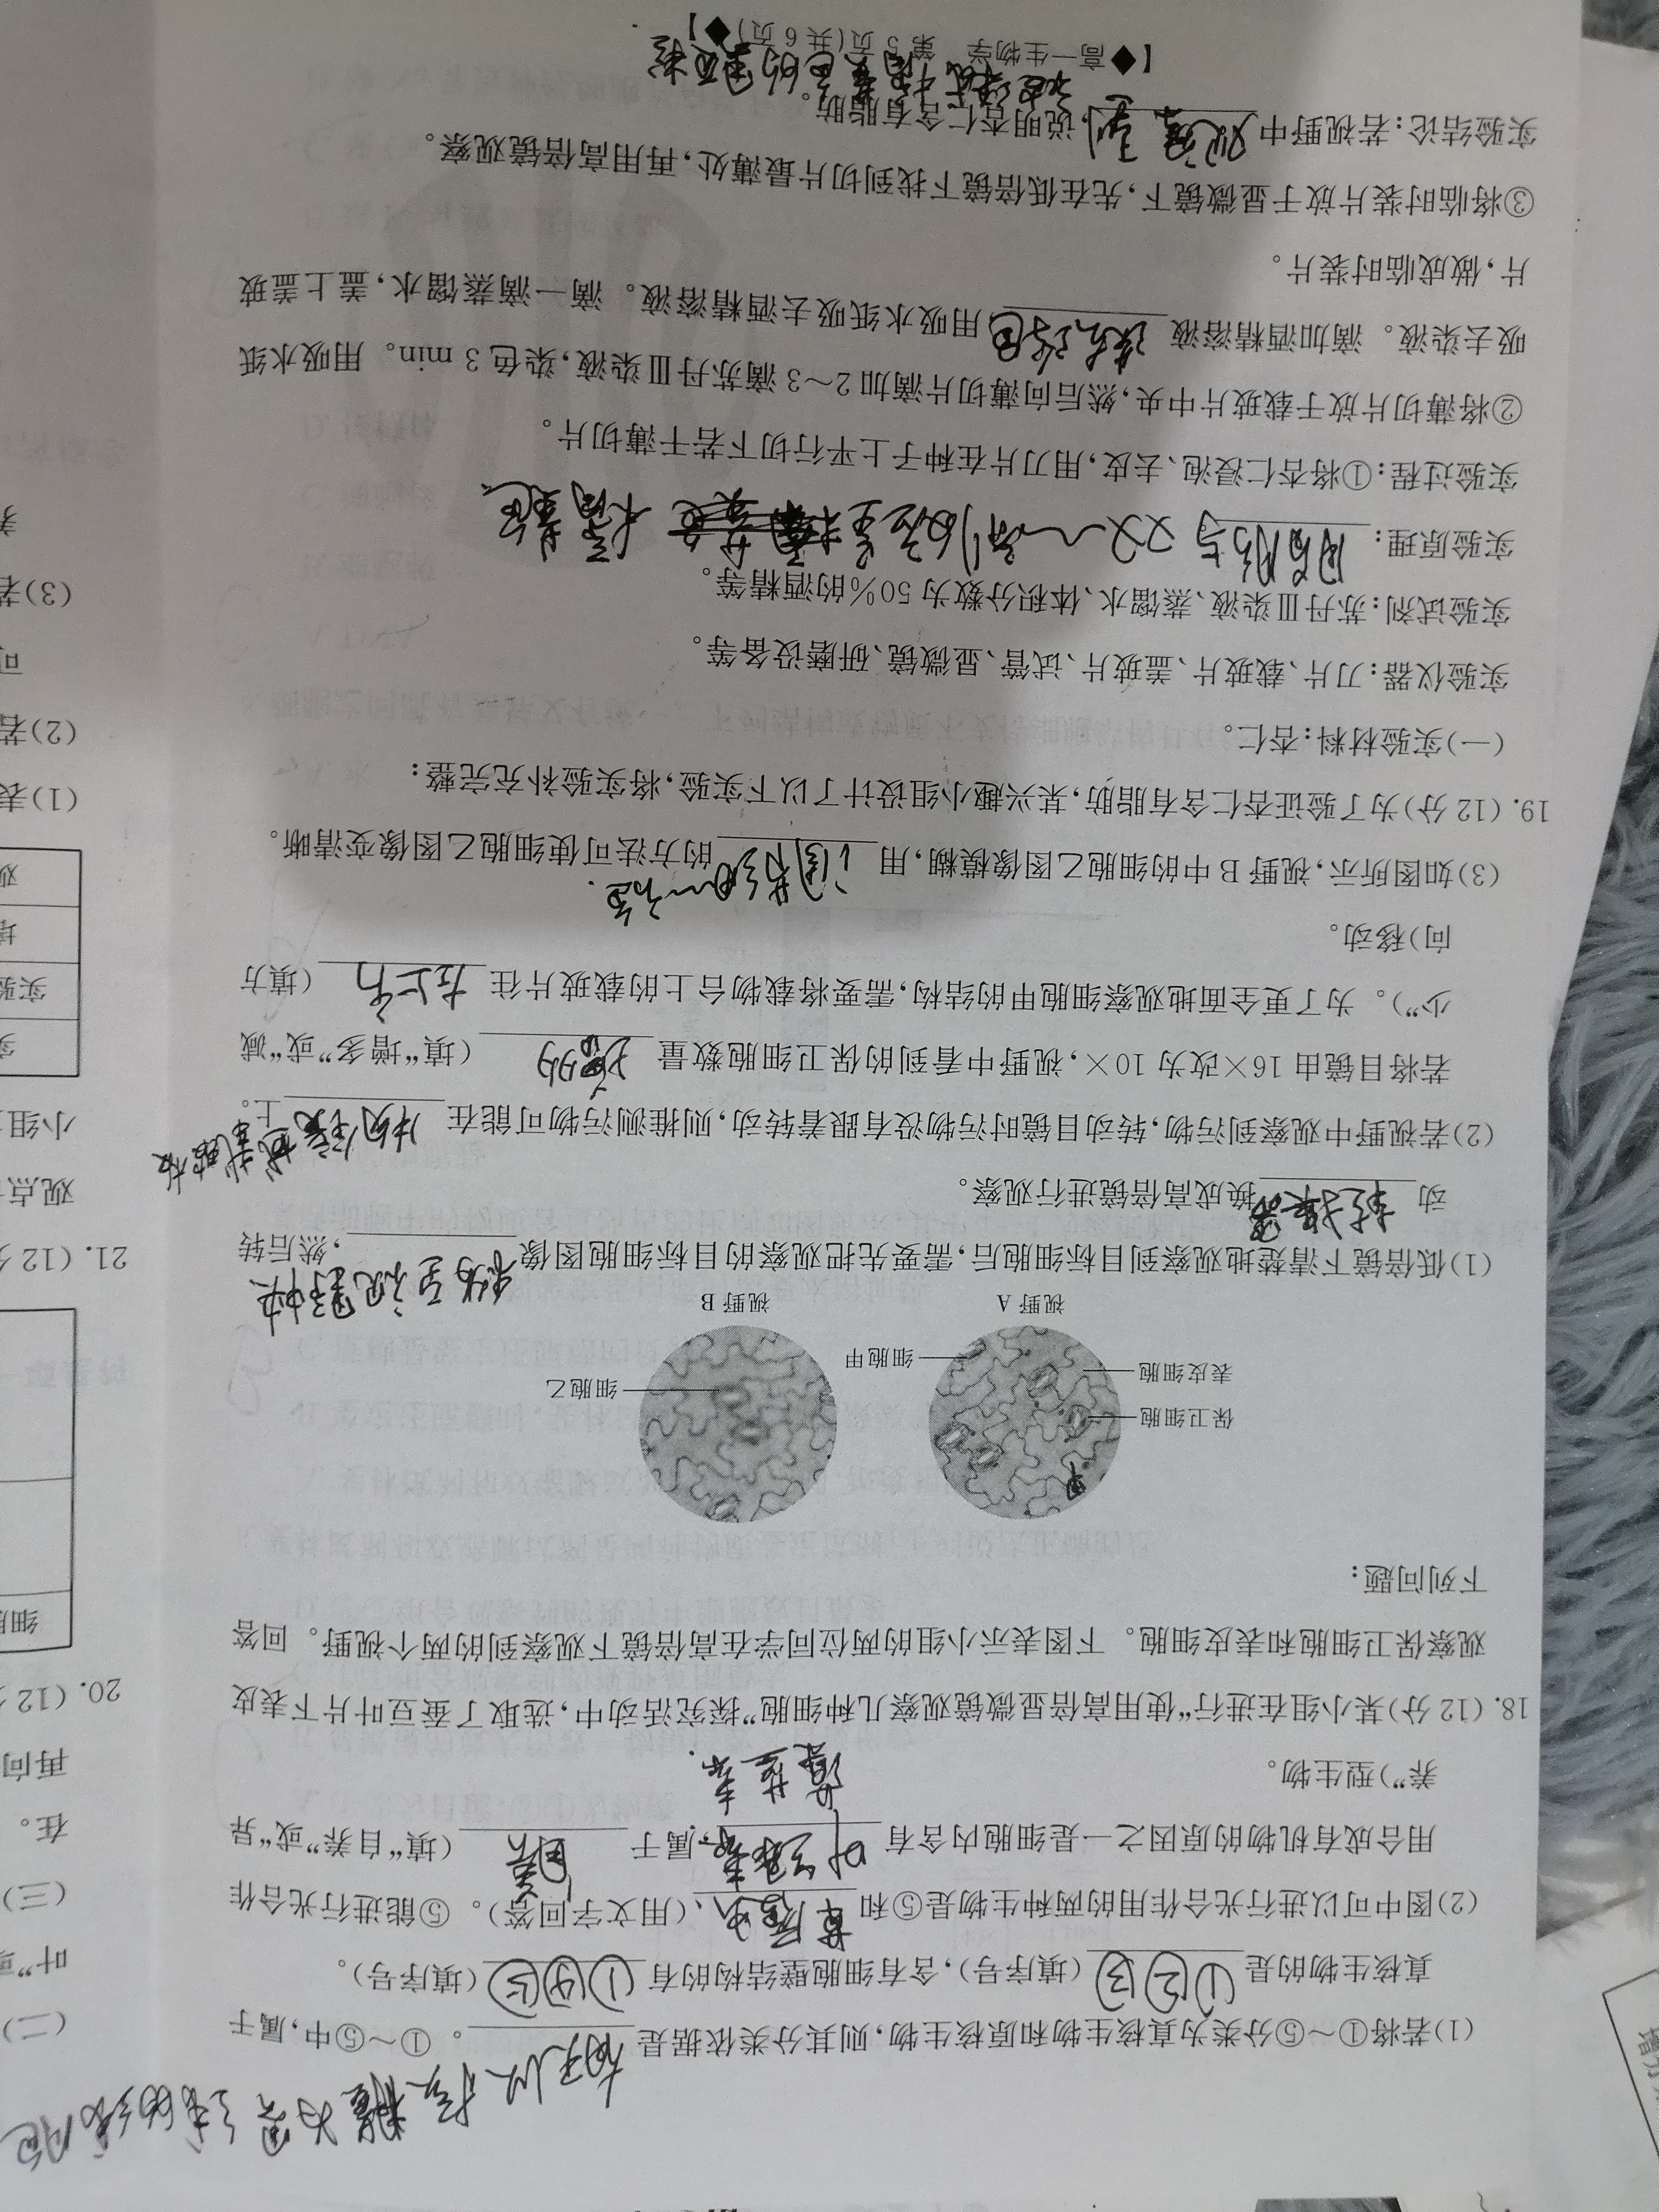 (1)若将①～⑤分类为真核生物和原核生物,则其分类依据是 有无以核膜为界 。①～⑤中,属于
真核生物的是 ①②③ (填序号),含有细胞壁结构的有 ①④⑤ (填序号)。
(2)图中可以进行光合作用的两种生物是⑤和 草履虫 (用文字回答)。⑤能进行光合作
用合成有机物的原因之一是细胞内含有 叶绿素、 ,属于 自养 (填“自养”或“异
藻蓝素.
养”)型生物。
18. (12 分)某小组在进行“使用高倍显微镜观察几种细胞”探究活动中,选取了蚕豆叶片下表皮
观察保卫细胞和表皮细胞。下图表示小组的两位同学在高倍镜下观察到的两个视野。回答
下列问题:
保卫细胞
表皮细胞
细胞甲
视野 A
细胞乙
视野 B
(1)低倍镜下清楚地观察到目标细胞后,需要先把观察的目标细胞图像 移动至视野中央 ,然后转
动 转换器 换成高倍镜进行观察。
(2)若视野中观察到污物,转动目镜时污物没有跟着转动,则推测污物可能在 物镜或载玻片 上。
若将目镜由 16×改为 10×,视野中看到的保卫细胞数量 增多 (填“增多”或“减
少”)。为了更全面地观察细胞甲的结构,需要将载物台上的载玻片往 左上方 (填方
向)移动。
(3)如图所示,视野 B 中的细胞乙图像模糊,用 调节细 的方法可使细胞乙图像变清晰。
19. (12 分)为了验证杏仁含有脂肪,某兴趣小组设计了以下实验,将实验补充完整:
(一)实验材料:杏仁。
实验仪器:刀片、载玻片、盖玻片、试管、显微镜、研磨设备等。
实验试剂:苏丹Ⅲ染液、蒸馏水、体积分数为 50%的酒精等。
实验原理: 脂肪与 橘黄色
实验过程:①将杏仁浸泡、去皮,用刀片在种子上平行切下若干薄切片。
②将薄切片放于载玻片中央,然后向薄切片滴加 2～3 滴苏丹Ⅲ染液,染色 3 min。用吸水纸
吸去染液。滴加酒精溶液 洗去浮色 用吸水纸吸去酒精溶液。滴一滴蒸馏水,盖上盖玻
片,做成临时装片。
③将临时装片放于显微镜下,先在低倍镜下找到切片最薄处,再用高倍镜观察。
实验结论:若视野中 观察到 ,说明杏仁含有脂肪。
【◆高一生物学 第 5 页(共 6 页)◆】
(二)
叶”或
(三)
在。
再向
20. (12 分
细胞
21. (12 分
观点
小组
实
实验
培
观
(1)表
(2)若
可
(3)若